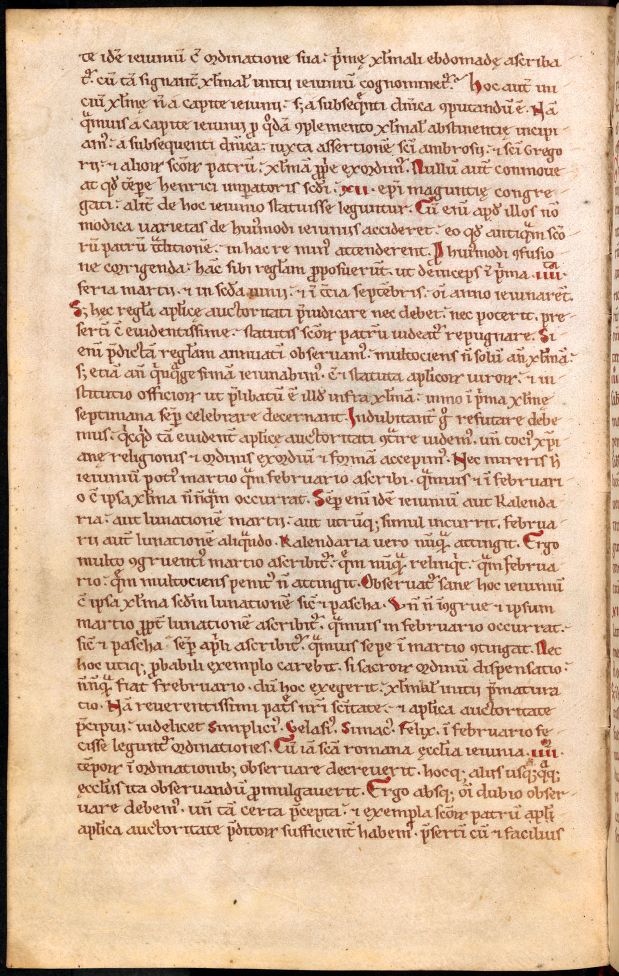 te idē ieiuniū ē ordinatione sua · p̄mę xlmali ebdomadę ascriba
t᷒ · cū tā signant̄ xlmal᷒ initii ieiuniū cognominet᷒ · Hoc aut̄ ini
ciū xlmę n̄ a capite ieiunii · s; a subseq̄nti dn̄ica ꝯputandū ē · Nā
q̄muis a capite ieiunii ꝓ q̇dā ꝯplemento xlmal᷒ abstinentię incipi
am᷒ · a subsequenti dn̄ica · iuxta assertionē sc̄i ambrosii · ⁊ sc̄i grego
rii · ⁊ alioꝝ sc̄oꝝ patrū · xlmā ꝓprie exordim᷒ · Nullum aut̄ conmoue
at qd̄ tēpe henrici imꝑatoris scd̄i · xii · ep̄i maguntię congre
gati · alit̄ de hoc ieiunio statuisse leguntur · Cū enī apd̄ illos nō
modica uarietas de hui᷒modi ieiuniis accideret · eo qd̄ antiq̄m sc̄o
rū patrū t̄ditionē · in hac re min᷒ attenderent · ꝓ hui᷒modi ꝯfusio
ne corrigenda · hanc sibi reglam ꝓposuerunt · ut deinceps ī p̄ma · iiii ·
feria martii · ⁊ in scd̄a iunii · ⁊ ī t̄cia septēbris · oī anno ieiunarent̄ ·
S; hęc regla aplicę auctoritati p̄iudicare nec debet · nec poterit · pre
sertī ē euidentissime · statutis sc̄oꝝ patrū uideat᷒ repugnare · Si
enī p̄dictā reglam annuati obseruam᷒ · multociens n̄ solū an̄ xlmā ·
s; etiā an̄ q̄nq̄gesimam ieiunabim᷒ · ē ⁊ statuta aplicoꝝ uiroꝝ · ⁊ in
stitutio officioꝝ ut p̄libatū ē illd̄ infra xlmā · immo ī p̄ma xlmę
septimana sēp celebrare decernant · Indubitant̄ g᷒ refutare debe
mus · q̄cq̄d tā euident̄ aplicę auctoritati ꝯt̄ire uidem᷒ · un̄ toci᷒ xp̄i
anę religionis ⁊ ordinis exordiū ⁊ formā accepim᷒ · Nec mireris h̄
ieiunium poti᷒ martio q̄m februario ascribi · q̄muis ⁊ ī februari
o ē ipsa xlma n̄nq̄m occurrat · Sēp enī idē ieiunium aut kalenda
ria · aut lunationē martii · aut utrūq; simul incurrit · februa
rii aut̄ lunationē aliq̄ndo · kalendaria uero nūq̄ attingit · Ergo
multo ꝯgruenti᷒ martio ascribit᷒ · q̄m nūq̄ relinq̄t · q̄m februa
rio · q̄m multociens penit᷒ n̄ attingit · Obseruat᷒ sane hoc ieiuniū
ē ipsa xlma scd̄m lunationē sic̄ ⁊ pascha · Un̄ n̄ īꝯgrue ⁊ ipsum
martio ꝓpt̄ lunationē ascribit᷒ · q̄muis in februario occurrat ·
sic̄ ⁊ pascha sēp apl̄i ascribit᷒ · q̄muis sepe ī martio ꝯtingat · Nec
hoc utiq; ꝓbabili exemplo carebit · si sacroꝝ ordinū dispensatio
n̄nq̄ fiat februario · cū hoc exegerit · xlmal᷒ initii p̄matura
tio · Nā reuerentissimi pat̄s nr̄i sc̄itate · ⁊ aplica auctoritate
p̄cipui · uidelicet Simplici᷒ · Gelasi᷒ · Simac᷒ · Felix · ī februario fe
cisse legunt᷒ ordinationes · Cū iā sc̄a romana ęcclia ieiunia · iiiior ·
tēpoꝝ ī ordinationib; obseruare decreuerit · hocq; aliis usq;q̄q;
ęccliis ita obseruandū ꝓmulgauerit · Ergo absq; oī dubio obser
uare debem᷒ · un̄ tā certa p̄cepta · ⁊ exempla sc̄oꝝ patrū apl̄i
aplica auctoritate p̄ditoꝝ sufficient̄ habem᷒ · p̄sertī cū ⁊ facilius